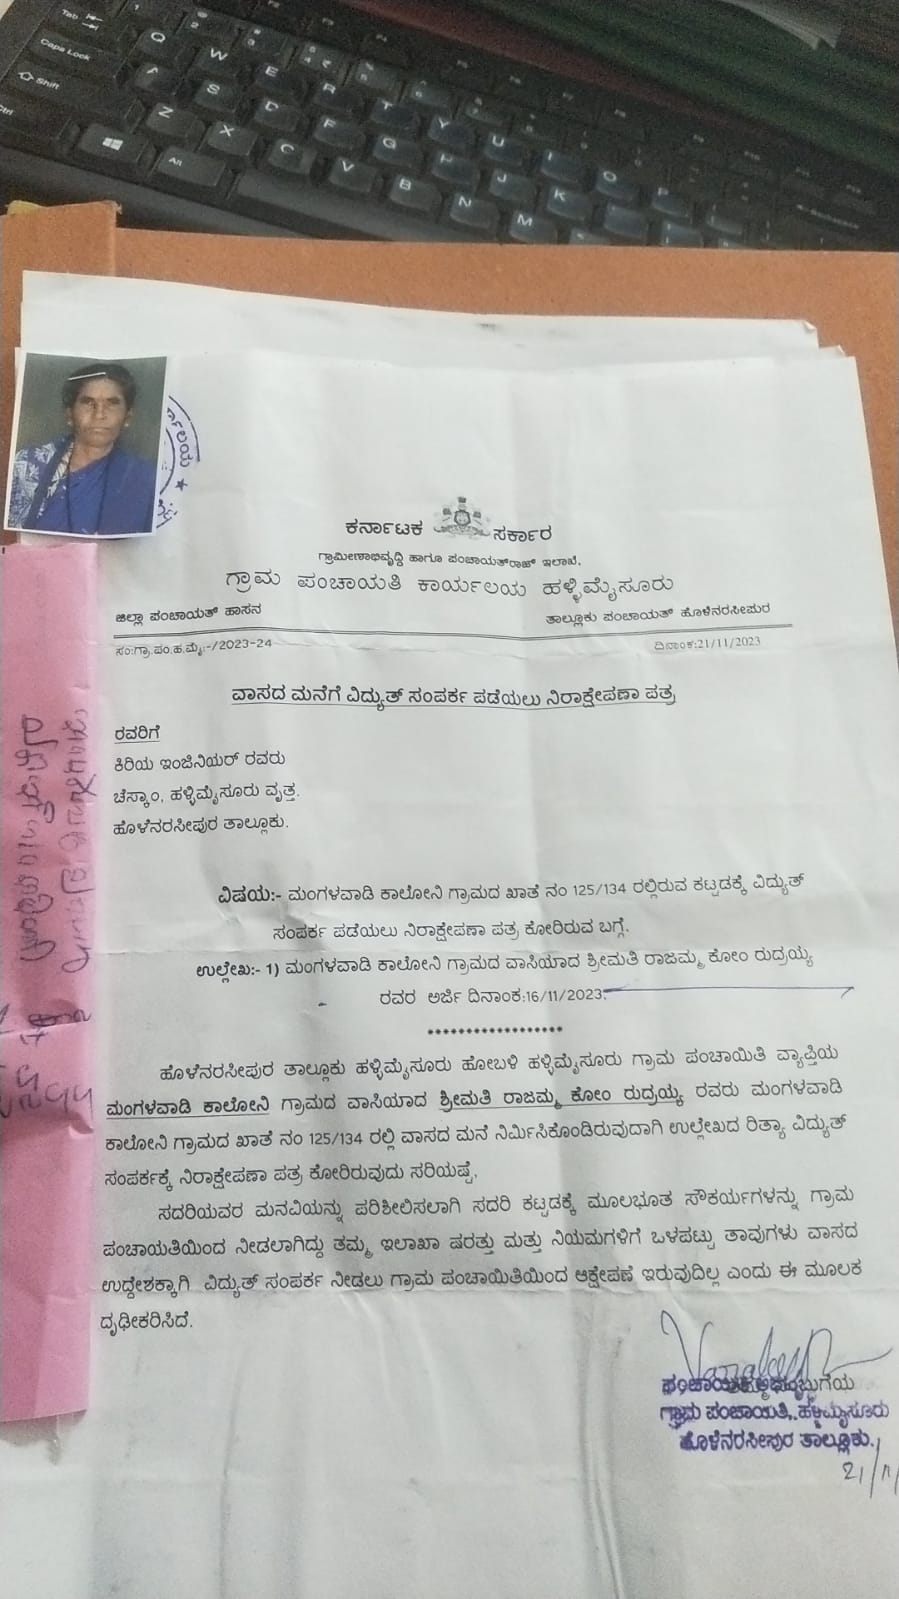 ಕರ್ನಾಟಕ ಸರ್ಕಾರ
ಗ್ರಾಮೀಣಾಭಿವೃದ್ಧಿ ಹಾಗೂ ಪಂಚಾಯತ್‌ರಾಜ್ ಇಲಾಖೆ,
ಗ್ರಾಮ ಪಂಚಾಯತಿ ಕಾರ್ಯಲಯ ಹಳ್ಳಿಮೈಸೂರು
ಜಿಲ್ಲಾ ಪಂಚಾಯತ್ ಹಾಸನ
ತಾಲ್ಲೂಕು ಪಂಚಾಯತ್ ಹೊಳೆನರಸೀಪುರ
ಸಂ:ಗ್ರಾ.ಪಂ.ಹ.ಮೈ:-/2023-24
ದಿನಾಂಕ:21/11/2023
ವಾಸದ ಮನೆಗೆ ವಿದ್ಯುತ್ ಸಂಪರ್ಕ ಪಡೆಯಲು ನಿರಾಕ್ಷೇಪಣಾ ಪತ್ರ
ರವರಿಗೆ
ಕಿರಿಯ ಇಂಜಿನಿಯರ್ ರವರು
ಚೆಸ್ಕಾಂ, ಹಳ್ಳಿಮೈಸೂರು ವೃತ್ತ.
ಹೊಳೆನರಸೀಪುರ ತಾಲ್ಲೂಕು.
ವಿಷಯ:- ಮಂಗಳವಾಡಿ ಕಾಲೋನಿ ಗ್ರಾಮದ ಖಾತೆ ನಂ 125/134 ರಲ್ಲಿರುವ ಕಟ್ಟಡಕ್ಕೆ ವಿದ್ಯುತ್
ಸಂಪರ್ಕ ಪಡೆಯಲು ನಿರಾಕ್ಷೇಪಣಾ ಪತ್ರ ಕೋರಿರುವ ಬಗ್ಗೆ.
ಉಲ್ಲೇಖ:- 1) ಮಂಗಳವಾಡಿ ಕಾಲೋನಿ ಗ್ರಾಮದ ವಾಸಿಯಾದ ಶ್ರೀಮತಿ ರಾಜಮ್ಮ ಕೋಂ ರುದ್ರಯ್ಯ
ರವರ ಅರ್ಜಿ ದಿನಾಂಕ:16/11/2023.
******************
ಹೊಳೆನರಸೀಪುರ ತಾಲ್ಲೂಕು ಹಳ್ಳಿಮೈಸೂರು ಹೋಬಳಿ ಹಳ್ಳಿಮೈಸೂರು ಗ್ರಾಮ ಪಂಚಾಯಿತಿ ವ್ಯಾಪ್ತಿಯ
ಮಂಗಳವಾಡಿ ಕಾಲೋನಿ ಗ್ರಾಮದ ವಾಸಿಯಾದ ಶ್ರೀಮತಿ ರಾಜಮ್ಮ ಕೋಂ ರುದ್ರಯ್ಯ ರವರು ಮಂಗಳವಾಡಿ
ಕಾಲೋನಿ ಗ್ರಾಮದ ಖಾತೆ ನಂ 125/134 ರಲ್ಲಿ ವಾಸದ ಮನೆ ನಿರ್ಮಿಸಿಕೊಂಡಿರುವುದಾಗಿ ಉಲ್ಲೇಖದ ರಿತ್ಯಾ ವಿದ್ಯುತ್
ಸಂಪರ್ಕಕ್ಕೆ ನಿರಾಕ್ಷೇಪಣಾ ಪತ್ರ ಕೋರಿರುವುದು ಸರಿಯಷ್ಟೆ,
ಸದರಿಯವರ ಮನವಿಯನ್ನು ಪರಿಶೀಲಿಸಲಾಗಿ ಸದರಿ ಕಟ್ಟಡಕ್ಕೆ ಮೂಲಭೂತ ಸೌಕರ್ಯಗಳನ್ನು ಗ್ರಾಮ
ಪಂಚಾಯತಿಯಿಂದ ನೀಡಲಾಗಿದ್ದು ತಮ್ಮ ಇಲಾಖಾ ಷರತ್ತು ಮತ್ತು ನಿಯಮಗಳಿಗೆ ಒಳಪಟ್ಟು ತಾವುಗಳು ವಾಸದ
ಉದ್ದೇಶಕ್ಕಾಗಿ ವಿದ್ಯುತ್ ಸಂಪರ್ಕ ನೀಡಲು ಗ್ರಾಮ ಪಂಚಾಯಿತಿಯಿಂದ ಆಕ್ಷೇಪಣೆ ಇರುವುದಿಲ್ಲ ಎಂದು ಈ ಮೂಲಕ
ದೃಢೀಕರಿಸಿದೆ.
ಗ್ರಾಮ ಪಂಚಾಯತಿ, ಹಳ್ಳಿಮೈಸೂರು
ಹೊಳೆನರಸೀಪುರ ತಾಲ್ಲೂಕು.
21/11/